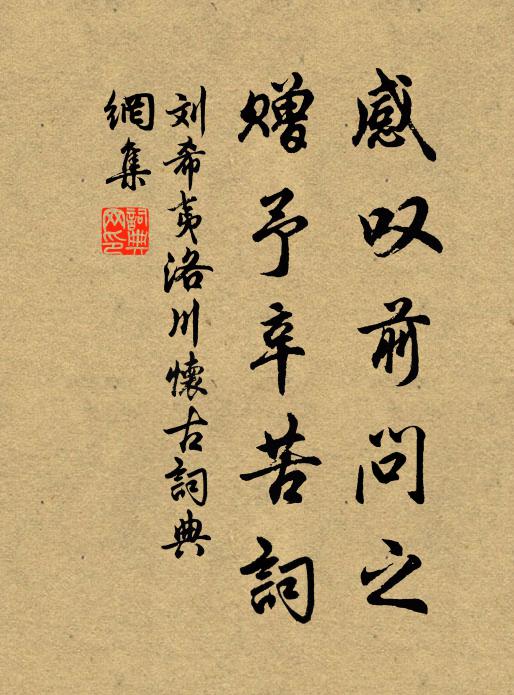 感叹前问之
赠予辛苦詞
刘希夷洛川懷古詞典
網集
詞典网印